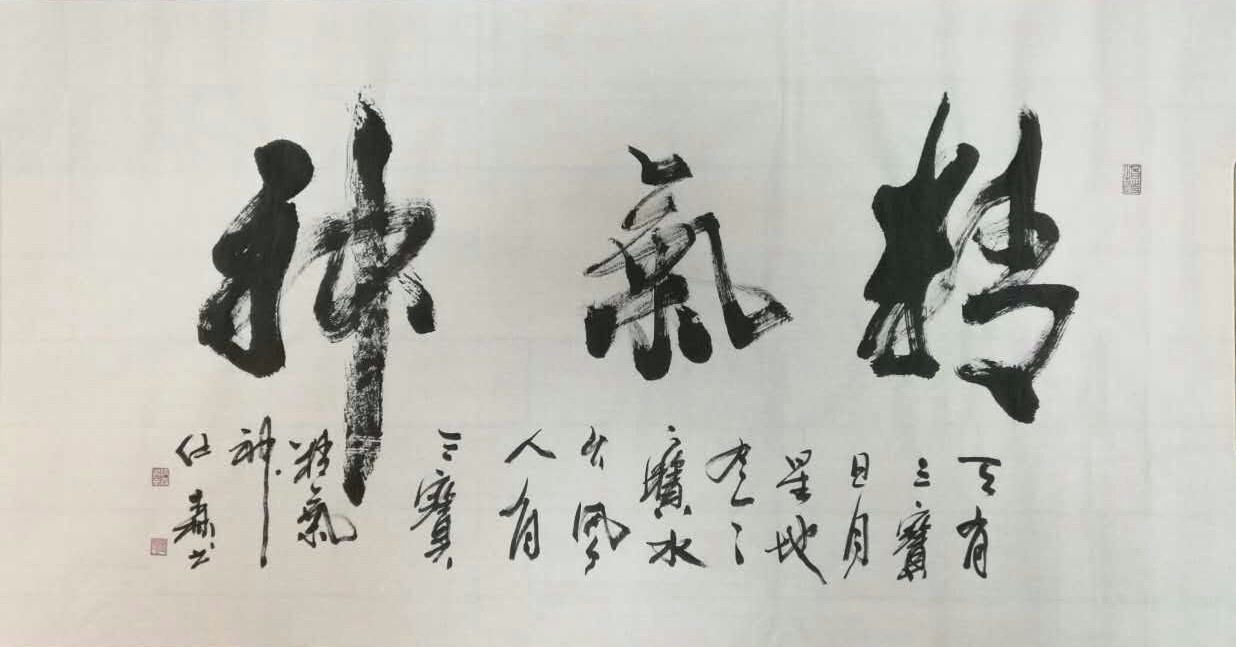 精氣神
天有
三寶
日月
星地
有三
寶水
火風
人有
三寶
精氣
神
书